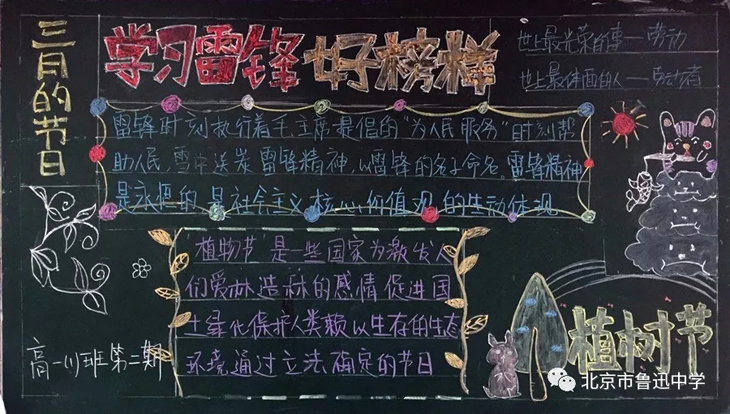 三月的节日
学习雷锋好榜样
世上最光荣的事——劳动
世上最体面的人——劳动者
雷锋时刻执行着毛主席提倡的“为人民服务”时刻帮
助人民,雪中送炭 雷锋精神,以雷锋的名字命名,雷锋精神
是永恒的 是社会主义核心价值观的生动体现
“植物节”是一些国家为激发人
们爱林造林的感情 促进国
土绿化保护人类赖以生存的生态
环境通过立法确定的节日
植树节
高一(1)班第二期
北京市鲁迅中学